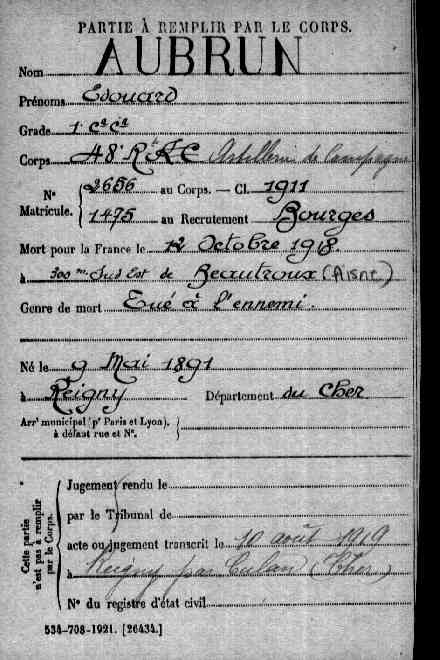 PARTIE À REMPLIR PAR LE CORPS.
Nom AUBRUN
Prénoms Edouard
Grade 1er Ct Ct
Corps 48e R A C Artillerie de Campagne
N° Matricule. 2656 au Corps. — Cl. 1911
1475 au Recrutement Bourges
Mort pour la France le 12 Octobre 1918.
à 300 m Sud Est de Beautroux (Aisne)
Genre de mort Tué à l'ennemi.
Né le 9 Mai 1891
à Reigny Département du Cher
Arrt municipal (pr Paris et Lyon),
à défaut rue et N°.
Cette partie n'est pas à remplir par le Corps.
Jugement rendu le
par le Tribunal de
acte ou jugement transcrit le 10 août 1919
à Reigny par Culan (Cher)
N° du registre d'état civil
534-708-1921. [26434.]